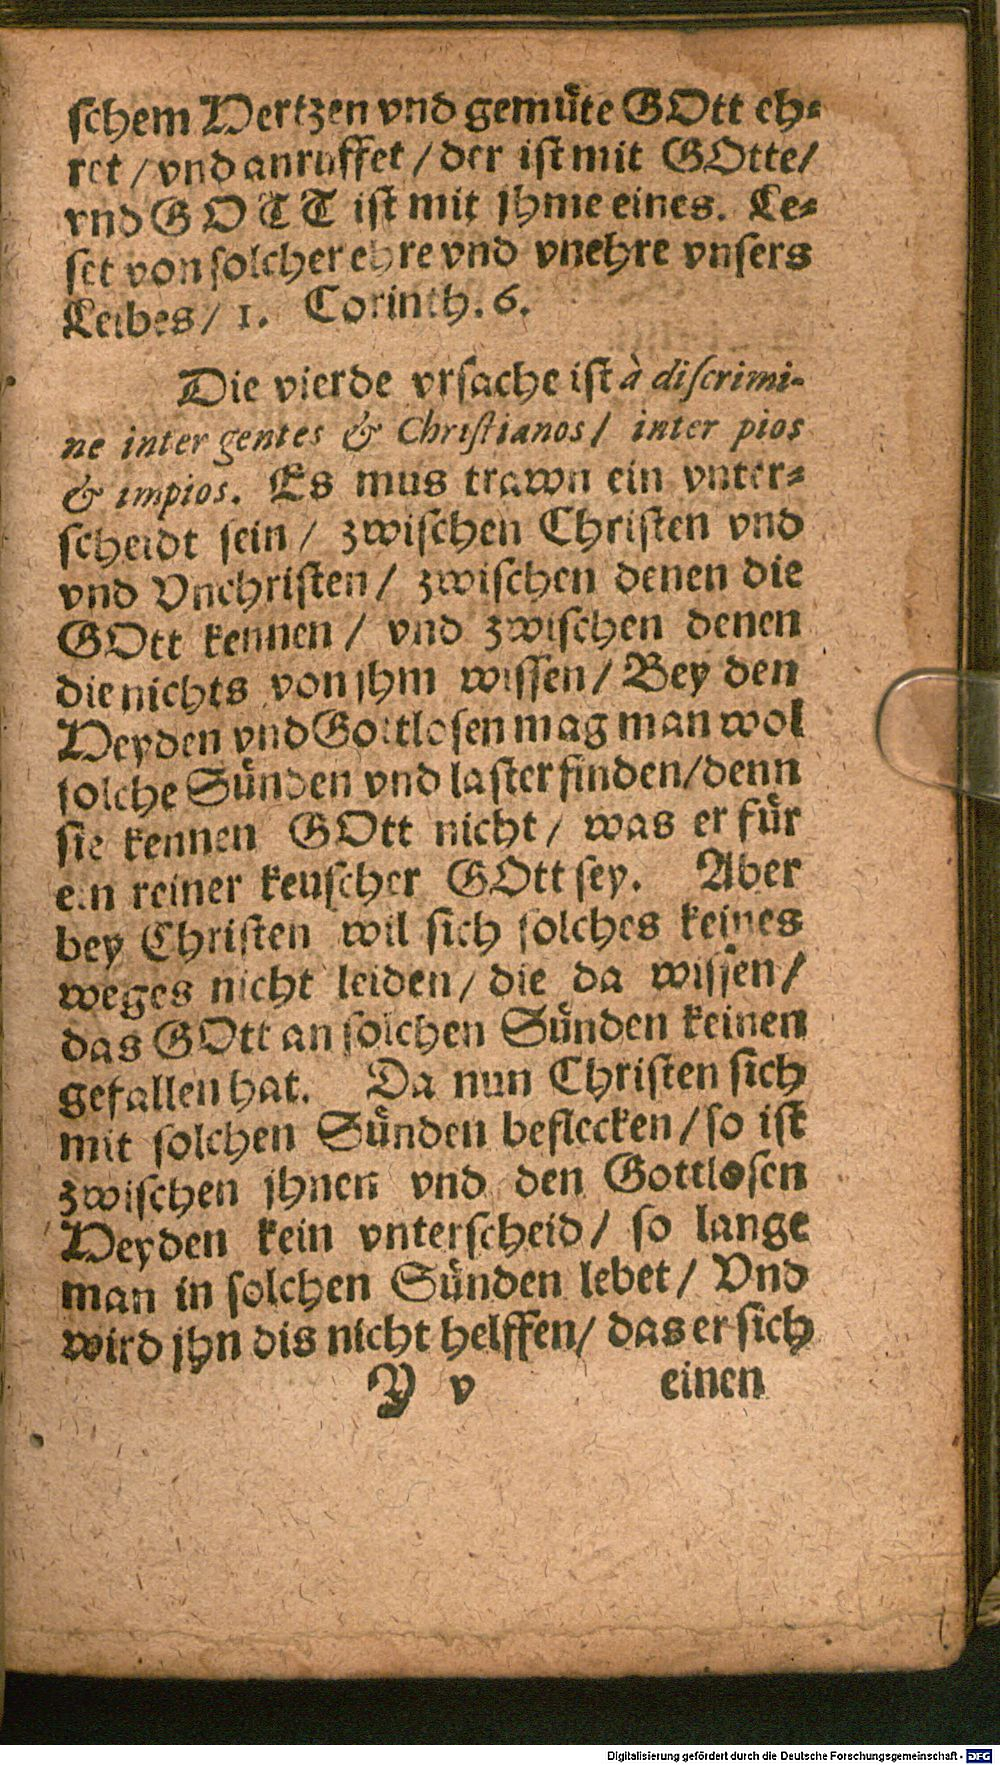 schem Hertzen vnd gemuͤte GOtt eh⸗
ret / vnd anruffet / der ist mit GOtte/
vnd GOTT ist mit jhme eines. Le⸗
set von solcher ehre vnd vnehre vnsers
Leibes/ 1. Corinth. 6.
Die vierde vrsache ist à discrimi-
ne inter gentes & Christianos/ inter pios
& impios. Es mus trawn ein vnter⸗
scheidt sein / zwischen Christen vnd
vnd Vnchristen / zwischen denen die
GOtt kennen / vnd zwischen denen
die nichts von jhm wissen / Bey den
Heyden vnd Gottlosen mag man wol
solche Suͤnden vnd laster finden/denn
sie kennen GOtt nicht / was er fuͤr
ein reiner keuscher GOtt sey. Aber
bey Christen wil sich solches keines
weges nicht leiden / die da wissen/
das GOtt an solchen Suͤnden keinen
gefallen hat. Da nun Christen sich
mit solchen Suͤnden beflecken / so ist
zwischen jhnen vnd den Gottlosen
Heyden kein vnterscheid / so lange
man in solchen Suͤnden lebet / Vnd
wird jhn dis nicht helffen/ das er sich
Y v einen
Digitalisierung gefördert durch die Deutsche Forschungsgemeinschaft - DFG